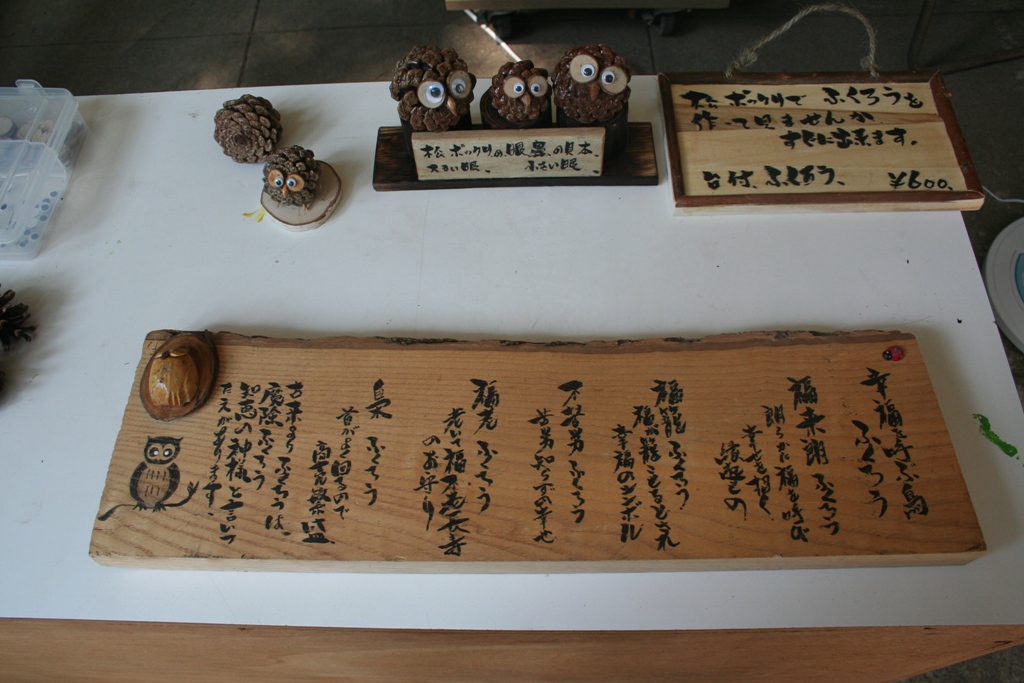 松ボックリで ふくろうを
作って見ませんか
すぐに出来ます。
台付、ふくろう、 ¥600、
松、ボックリの眼、鼻、の見本、
大きい眼、 小さい眼、
幸福を呼ぶ鳥
ふくろう
福来朗 ふくろう
朗らかに福を呼び
幸せを招く
福籠 ふくろう
福が籠こもると云れ
幸福のシンボル
不苦労 ふくろう
苦労知らずの幸也
福老 ふくろう
老いて福 不老長寿
のお守り
梟 ふくろう
首がよく回るので
商売繁盛
古来より ふくろうは、
魔除ふくろう
知恵の神様と言いつ
たえがあります。